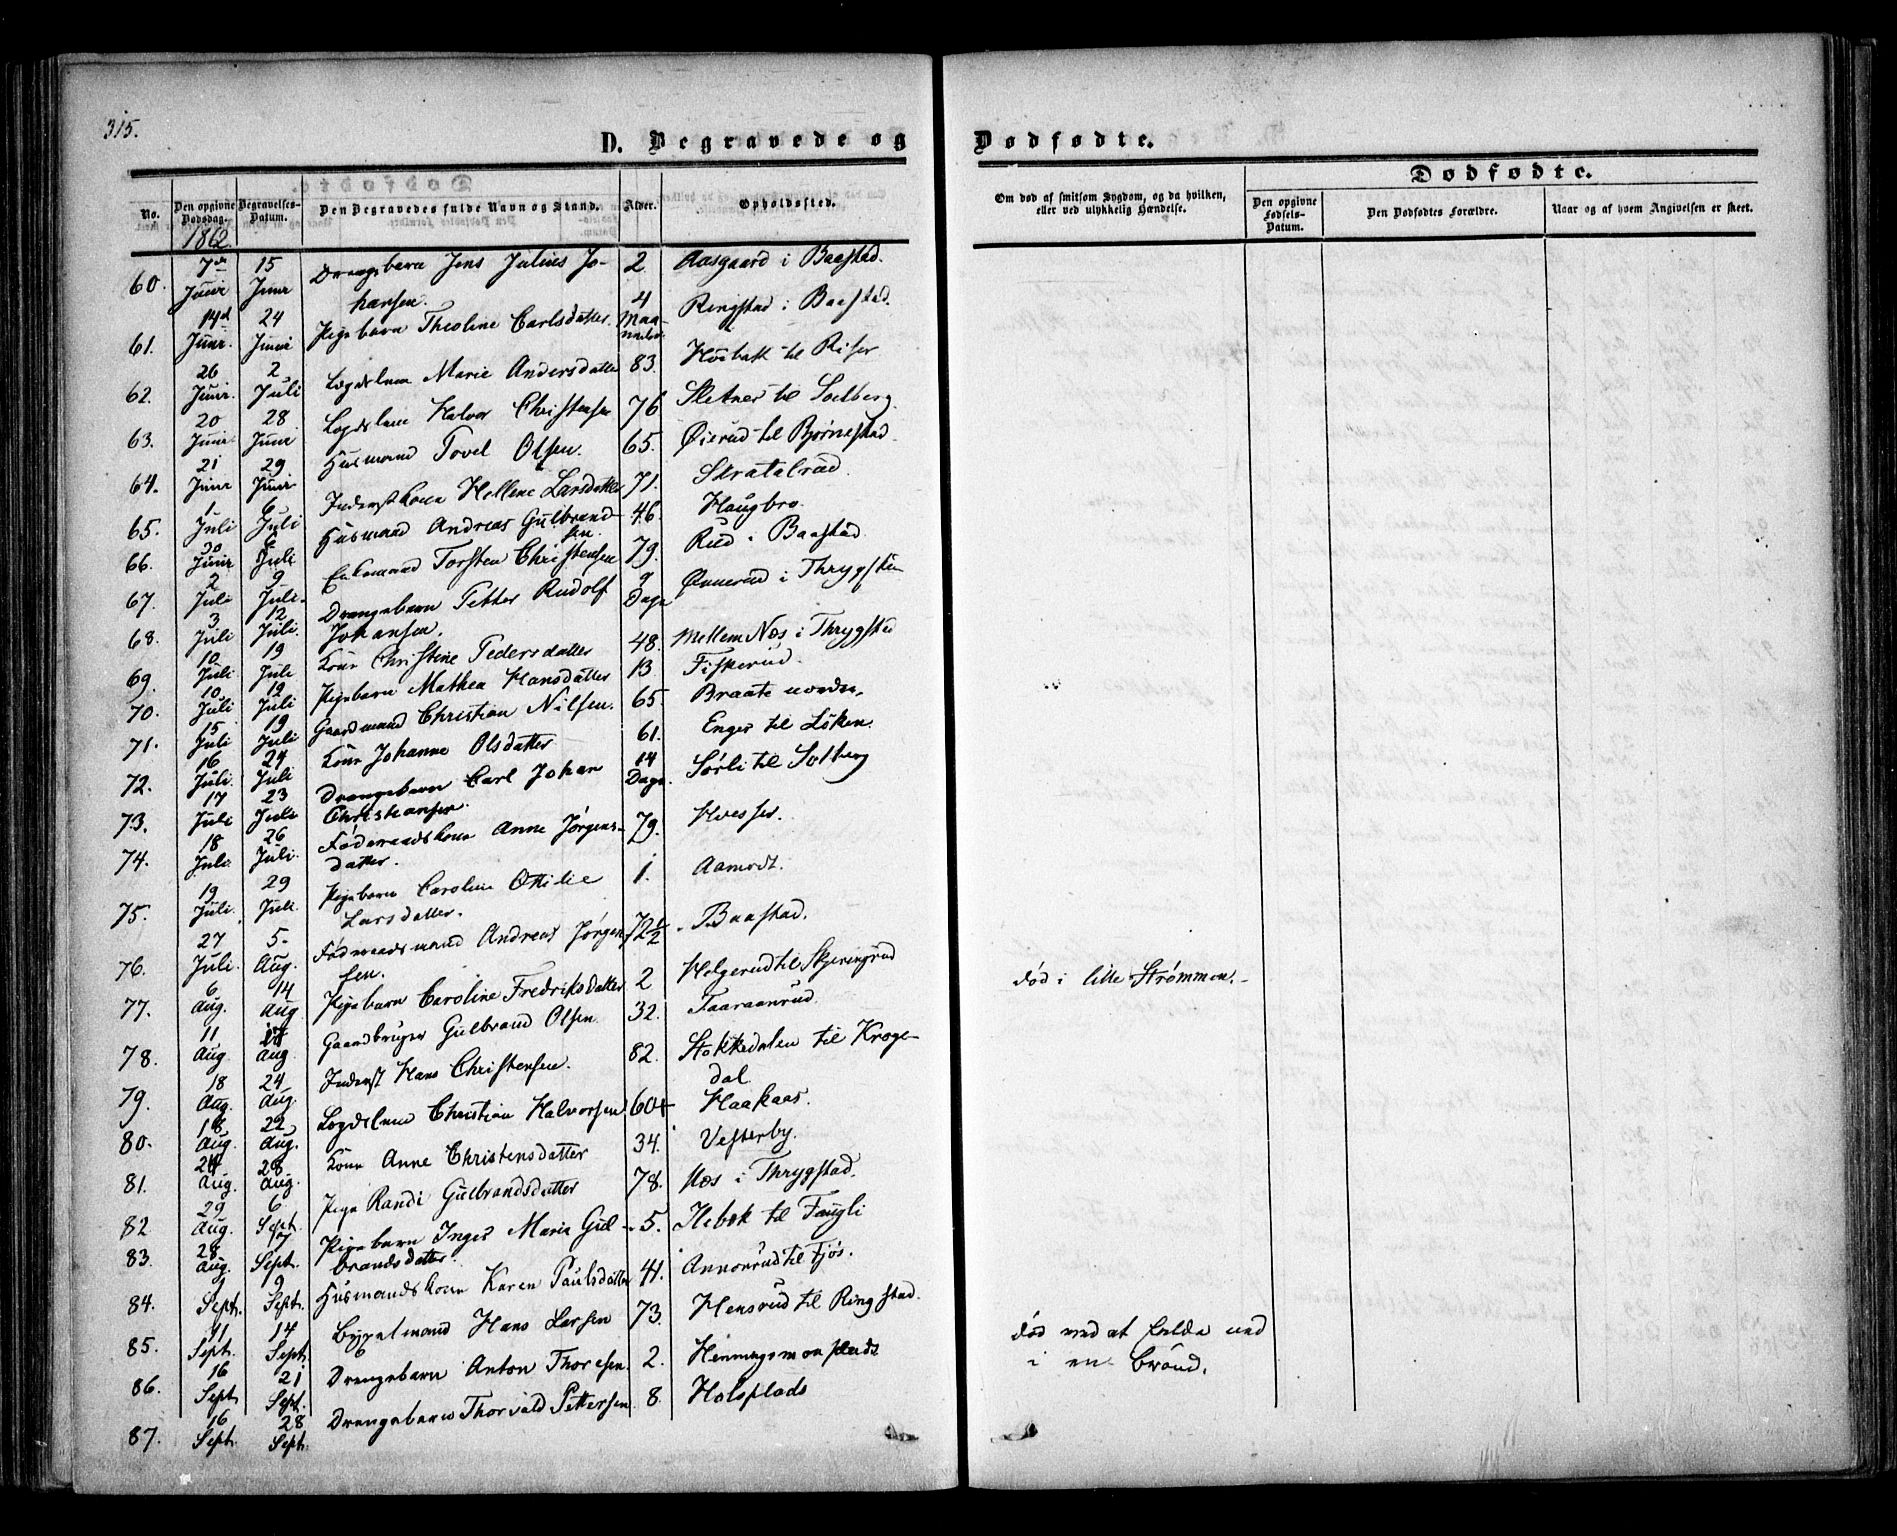 315.
D. Begravede og
Dødfødte.
No.
Den opgivne Dødsdag.
Begravelses-Datum.
Den Begravedes fulde Navn og Stand.
Alder.
Opholdssted.
Om død af smitsom Sygdom, og da hvilken, eller ved ulykkelig Hændelse.
Dødfødte.
Den opgivne Fødsels-Datum.
Den Dødfødtes Forældre.
Naar og af hvem Angivelsen er skeet.
1862
60. 7de Juni 15 Juni Drengebarn Jens Julius Johansen. 2 Aasgaard i Baastad.
61. 14d Juni. 24 Juni Pigebarn Theoline Carlsdatter. 4 Maaneder Ringstad i Baastad.
62. 26 Juni. 2 Juli Lægdslem Marie Andersdatter 83. Høibak til Riser
63. 20 Juni 28 Juni Lægdslem Halvor Christensen 76 Sletner til Solberg.
64. 21 Juni 29 Juni Husmand Tovel Olsen. 65. Øierud til Bjørnestad.
65. 1 Juli 6 Juli Inderstkone Hellene Larsdatter 71. Skratalrud.
66. 30 Juni 6 Juli Husmand Andreas Gulbrandsen. 46. Haugbro.
67. 2 Juli 9 Juli Enkemand Torsten Christensen 79. Rud i Baastad.
68. 3 Juli 12 Juli. Drengebarn Petter Rudolf Johansen. 9 Dage i Thrygstad
69. 10 Juli 19 Juli Kone Christine Pedersdatter 48. Mellem Næs i Thrygstad
70. 10 Juli 19 Juli Pigebarn Mathea Hansdatter 13 Fiskerud.
71. 15 Juli 19 Juli Gaardmand Christian Nilsen. 65. Braate nordre.
72. 16 Juli. 24 Juli Kone Johanne Olsdatter 61. Enger til Løken.
73. 17 Juli 23 Juli Drengebarn Carl Johan Christiansen. 14 Dage. Sørli til Solberg
74. 18 Juli 26 Juli. Føderaadskone Anne Jørgensdatter. 79. Hvesser.
75. 19 Juli. 29 Juli Pigebarn Caroline Ottilie Larsdatter. 1. Aamodt.
76. 27 Juli. 5 Aug. Føderaadsmand Andreas Jørgensen. 72½ Baastad.
77. 6 Aug. 14 Aug Pigebarn Caroline Fredriksdatter 2 Holgerud til Skjeringrud død i lille Strømmen.
78. 11 Aug. Aug. Gaardbruger Gulbrand Olsen. 32. Taaraanrud.
79. 18 Aug. 24 Aug. Inderst Hans Christensen. 82. Stokkedalen til Krogedal.
80. 18 Aug. 22 Aug. Lægdslem Christian Halvorsen 60 Haakaas.
81. 24 Aug. 28 Aug. Kone Anne Christensdatter 34. Vesterby.
82 29 Aug. 6 Sept. Pige Randi Gulbrandsdatter 78. Næs i Thrygstad.
83. 28 Aug. 7 Sept. Pigebarn Inger Marie Gulbrandsdatter. 5. Ilebæk til Faugli
84. 1 Sept. 9 Sept. Husmandskone Karen Paulsdatter 41. Annonrud til Fjøs.
85. 11 Sept. 14 Sept. Bygselmand Hans Larsen 73. Hensrud til Ringstad.
86. 16 Sept. 21 Sept. Drengebarn Anton Thoresen 2. Henningsmonplads død ved at falde ned i en Brønd.
87. 16 Sept. 28 Sept. Drengebarn Thorvald Pettersen 8. Holsplads